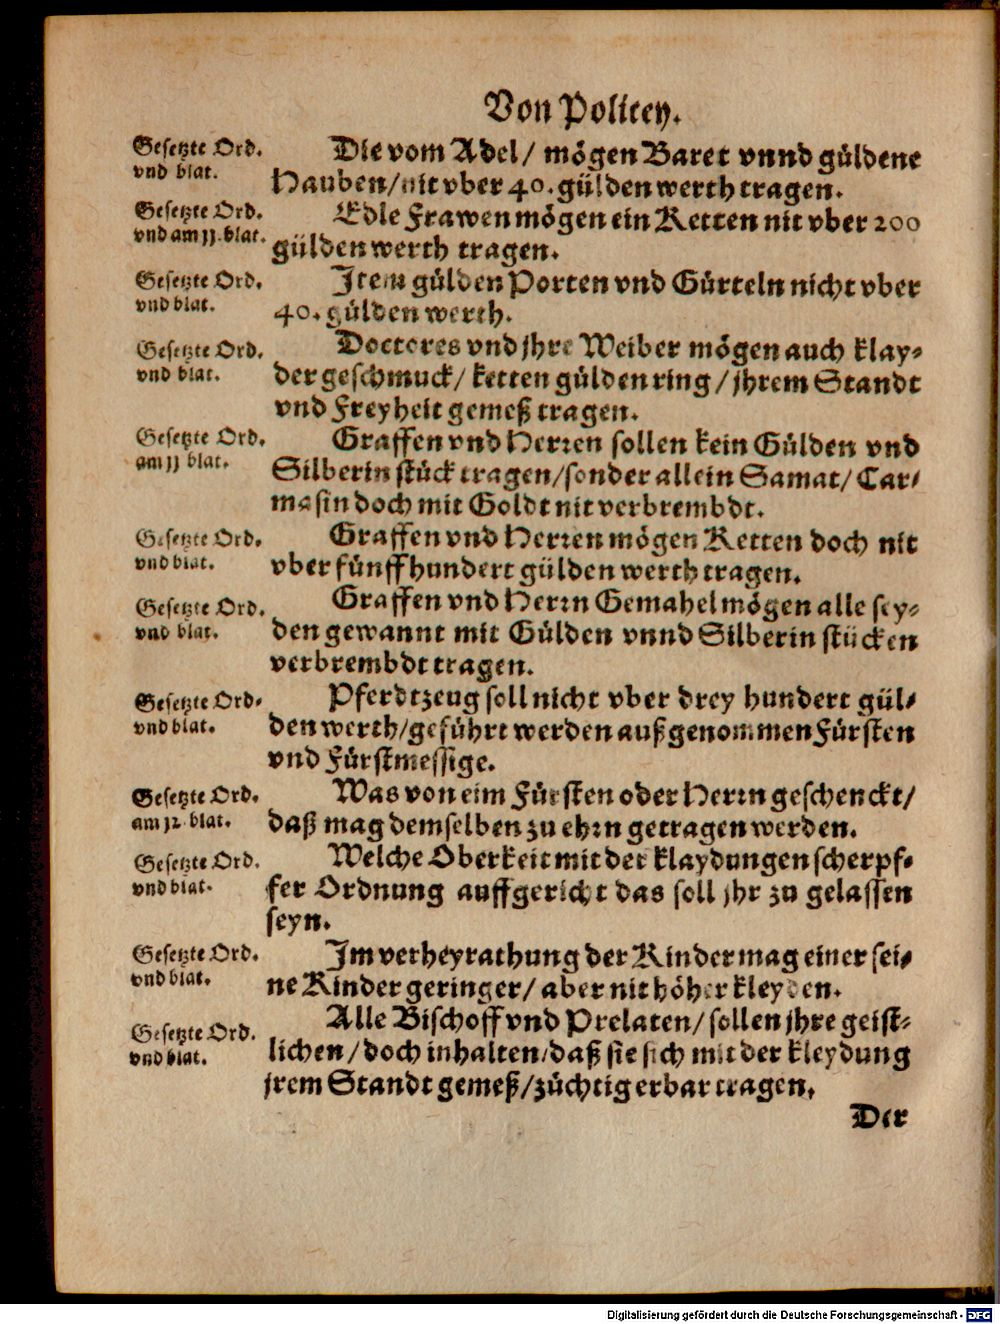 Von Policey.
Gesetzte Ord.
vnd blat.
Die vom Adel/ mögen Baret vnnd güldene
Hauben/nit vber 40. gülden werth tragen.
Gesetzte Ord.
vnd am 11. blat.
Edle Frawen mögen ein Ketten nit vber 200
gülden werth tragen.
Gesetzte Ord.
vnd blat.
Item gülden Porten vnd Gürteln nicht vber
40. gülden werth.
Gesetzte Ord.
vnd blat.
Doctores vnd jhre Weiber mögen auch klay-
der geschmuck/ ketten gülden ring/ jhrem Standt
vnd Freyheit gemeß tragen.
Gesetzte Ord.
am 11 blat.
Graffen vnd Herren sollen kein Gülden vnd
Silberin stück tragen/sonder allein Samat/ Car-
masin doch mit Goldt nit verbrembdt.
Gesetzte Ord.
vnd blat.
Graffen vnd Herren mögen Ketten doch nit
vber fünffhundert gülden werth tragen.
Gesetzte Ord.
vnd blat.
Graffen vnd Herrn Gemahel mögen alle sey-
den gewannt mit Gülden vnnd Silberin stücken
verbrembdt tragen.
Gesetzte Ord.
vnd blat.
Pferdtzeug soll nicht vber drey hundert gül-
den werth/geführt werden außgenommen Fürsten
vnd Fürstmessige.
Gesetzte Ord.
am 12. blat.
Was von eim Fürsten oder Herrn geschenckt/
daß mag demselben zu ehrn getragen werden.
Gesetzte Ord.
vnd blat.
Welche Oberkeit mit der klaydungen scherpf-
fer Ordnung auffgericht das soll jhr zu gelassen
seyn.
Gesetzte Ord.
vnd blat.
Im verheyrathung der Kinder mag einer sei-
ne Kinder geringer/ aber nit höher kleyden.
Gesetzte Ord.
vnd blat.
Alle Bischoff vnd Prelaten/ sollen jhre geist-
lichen/ doch inhalten/daß sie sich mit der kleydung
jrem Standt gemeß/züchtig erbar tragen.
Der
Digitalisierung gefördert durch die Deutsche Forschungsgemeinschaft - DFG